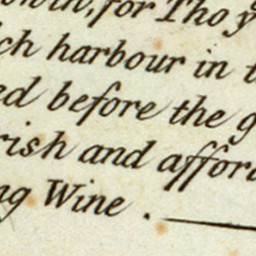 for Tho y
ch harbour in t
ed before the g
rish and affor
ng Wine .